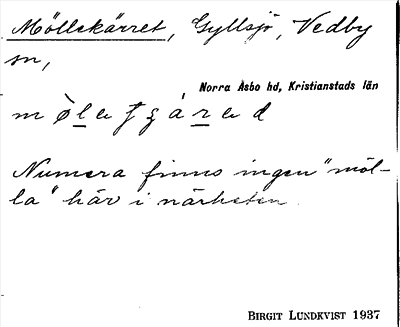 Möllekärret, Gyllsjö, Vedby
sn,
Norra Åsbo hd, Kristianstads län
Numera finns ingen "möl-
la" här i närheten.
BIRGIT LUNDKVIST 1937